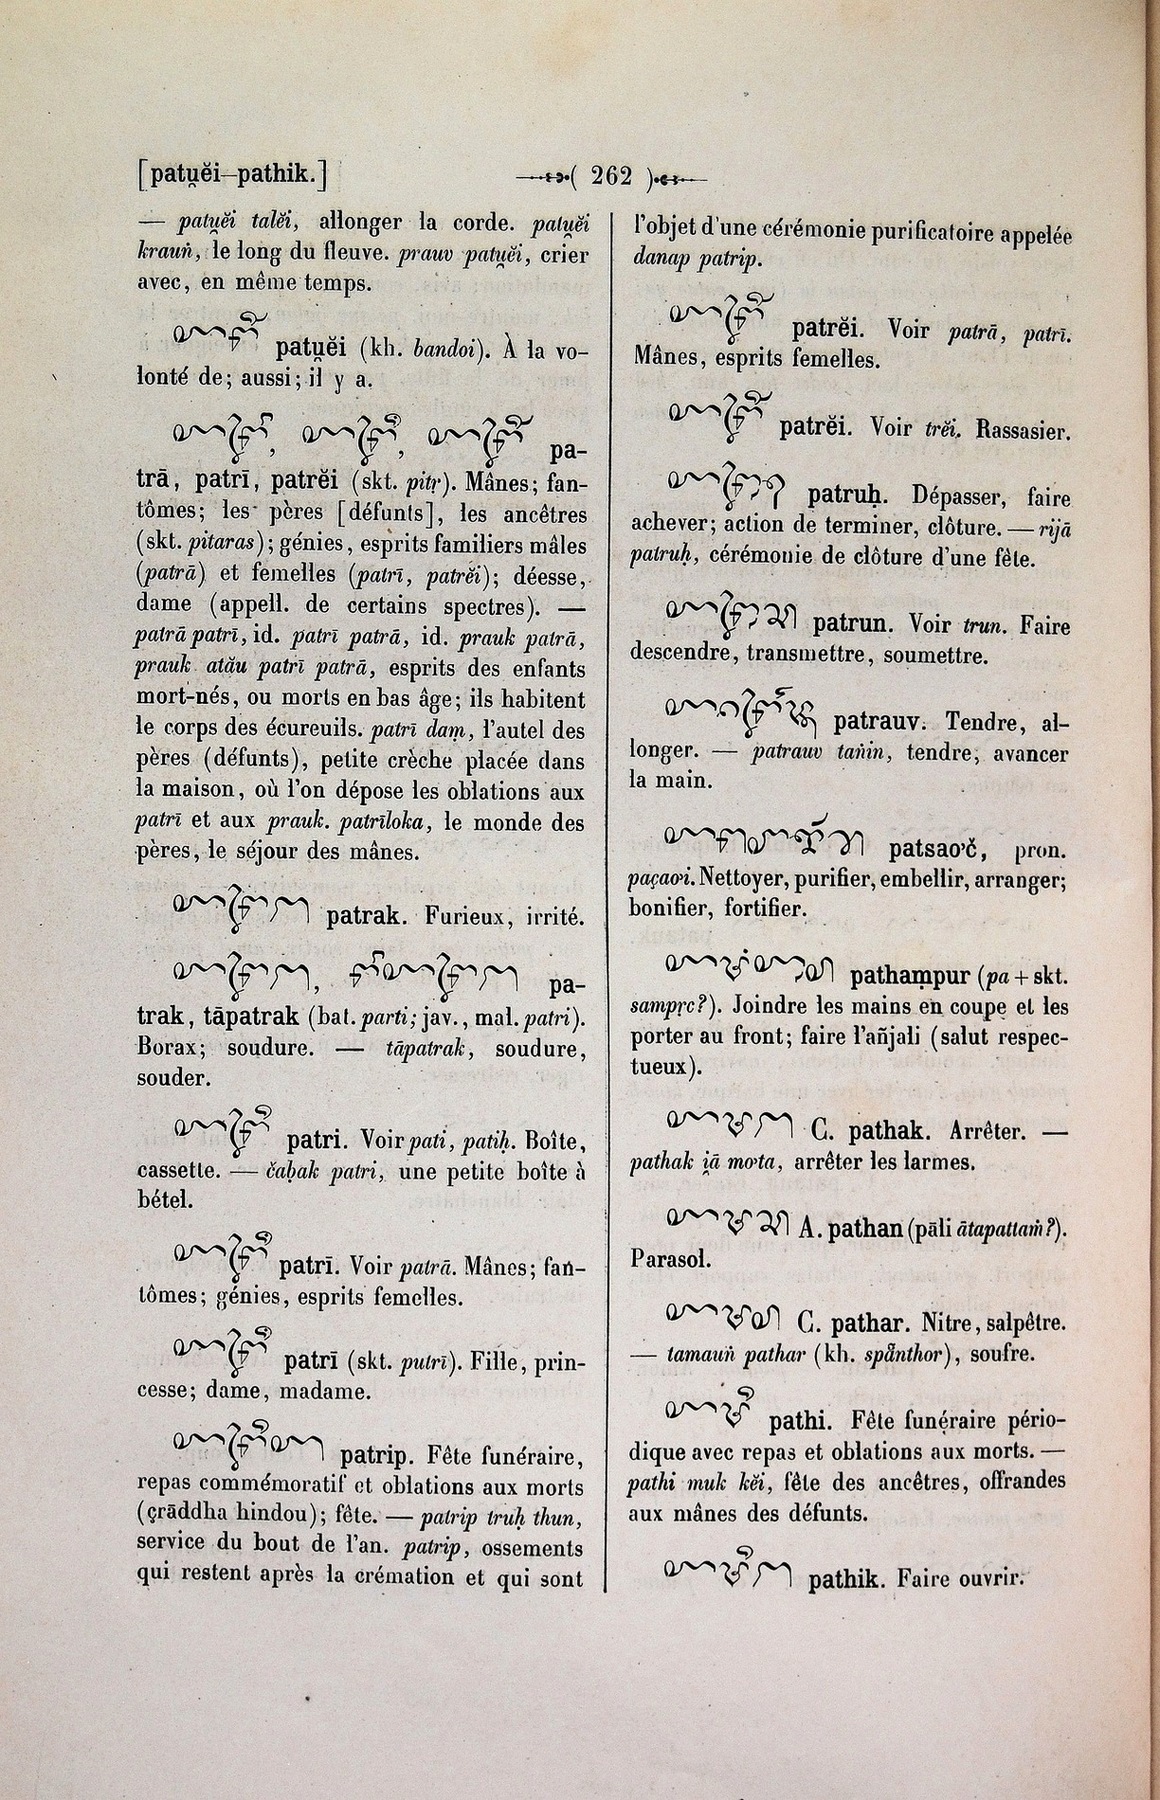 [patu̯ĕi–pathik.] ( 262 )
— patu̯ĕi talĕi, allonger la corde. patu̯ĕi
krauṅ, le long du fleuve. prauv patu̯ĕi, crier
avec, en même temps.
patu̯ĕi (kh. bandoi). À la vo-
lonté de; aussi; il y a.
pa-
trā, patrī, patrĕi (skt. pitṛ). Mânes; fan-
tômes; les pères [défunts], les ancêtres
(skt. pitaras); génies, esprits familiers mâles
(patrā) et femelles (patrī, patrĕi); déesse,
dame (appell. de certains spectres). —
patrā patrī, id. patrī patrā, id. prauk patrā,
prauk atău patrī patrā, esprits des enfants
mort-nés, ou morts en bas âge; ils habitent
le corps des écureuils. patrī daṃ, l'autel des
pères (défunts), petite crèche placée dans
la maison, où l'on dépose les oblations aux
patrī et aux prauk. patrīloka, le monde des
pères, le séjour des mânes.
patrak. Furieux, irrité.
pa-
trak, tāpatrak (bat. parti; jav., mal. patri).
Borax; soudure. — tāpatrak, soudure,
souder.
patri. Voir pati, patiḥ. Boîte,
cassette. — čaḥak patri, une petite boîte à
bétel.
patrī. Voir patrā. Mânes; fan-
tômes; génies, esprits femelles.
patrī (skt. putrī). Fille, prin-
cesse; dame, madame.
patrip. Fête funéraire,
repas commémoratif et oblations aux morts
(çrāddha hindou); fête. — patrip truḥ thun,
service du bout de l'an. patrip, ossements
qui restent après la crémation et qui sont
l'objet d'une cérémonie purificatoire appelée
danap patrip.
patrĕi. Voir patrā, patrī.
Mânes, esprits femelles.
patrĕi. Voir trĕi. Rassasier.
patruḥ. Dépasser, faire
achever; action de terminer, clôture. — rijā
patruḥ, cérémonie de clôture d'une fête.
patrun. Voir trun. Faire
descendre, transmettre, soumettre.
patrauv. Tendre, al-
longer. — patrauv taṅin, tendre, avancer
la main.
patsao̕č, pron.
paçao̕i. Nettoyer, purifier, embellir, arranger;
bonifier, fortifier.
pathaṃpur (pa + skt.
sampṛc?). Joindre les mains en coupe et les
porter au front; faire l'añjali (salut respec-
tueux).
C. pathak. Arrêter. —
pathak i̯ā mo̕ta, arrêter les larmes.
A. pathan (pāli ātapattaṁ?).
Parasol.
C. pathar. Nitre, salpêtre.
— tamauṅ pathar (kh. spănthor), soufre.
pathi. Fête funéraire pério-
dique avec repas et oblations aux morts. —
pathi muk kĕi, fête des ancêtres, offrandes
aux mânes des défunts.
pathik. Faire ouvrir.